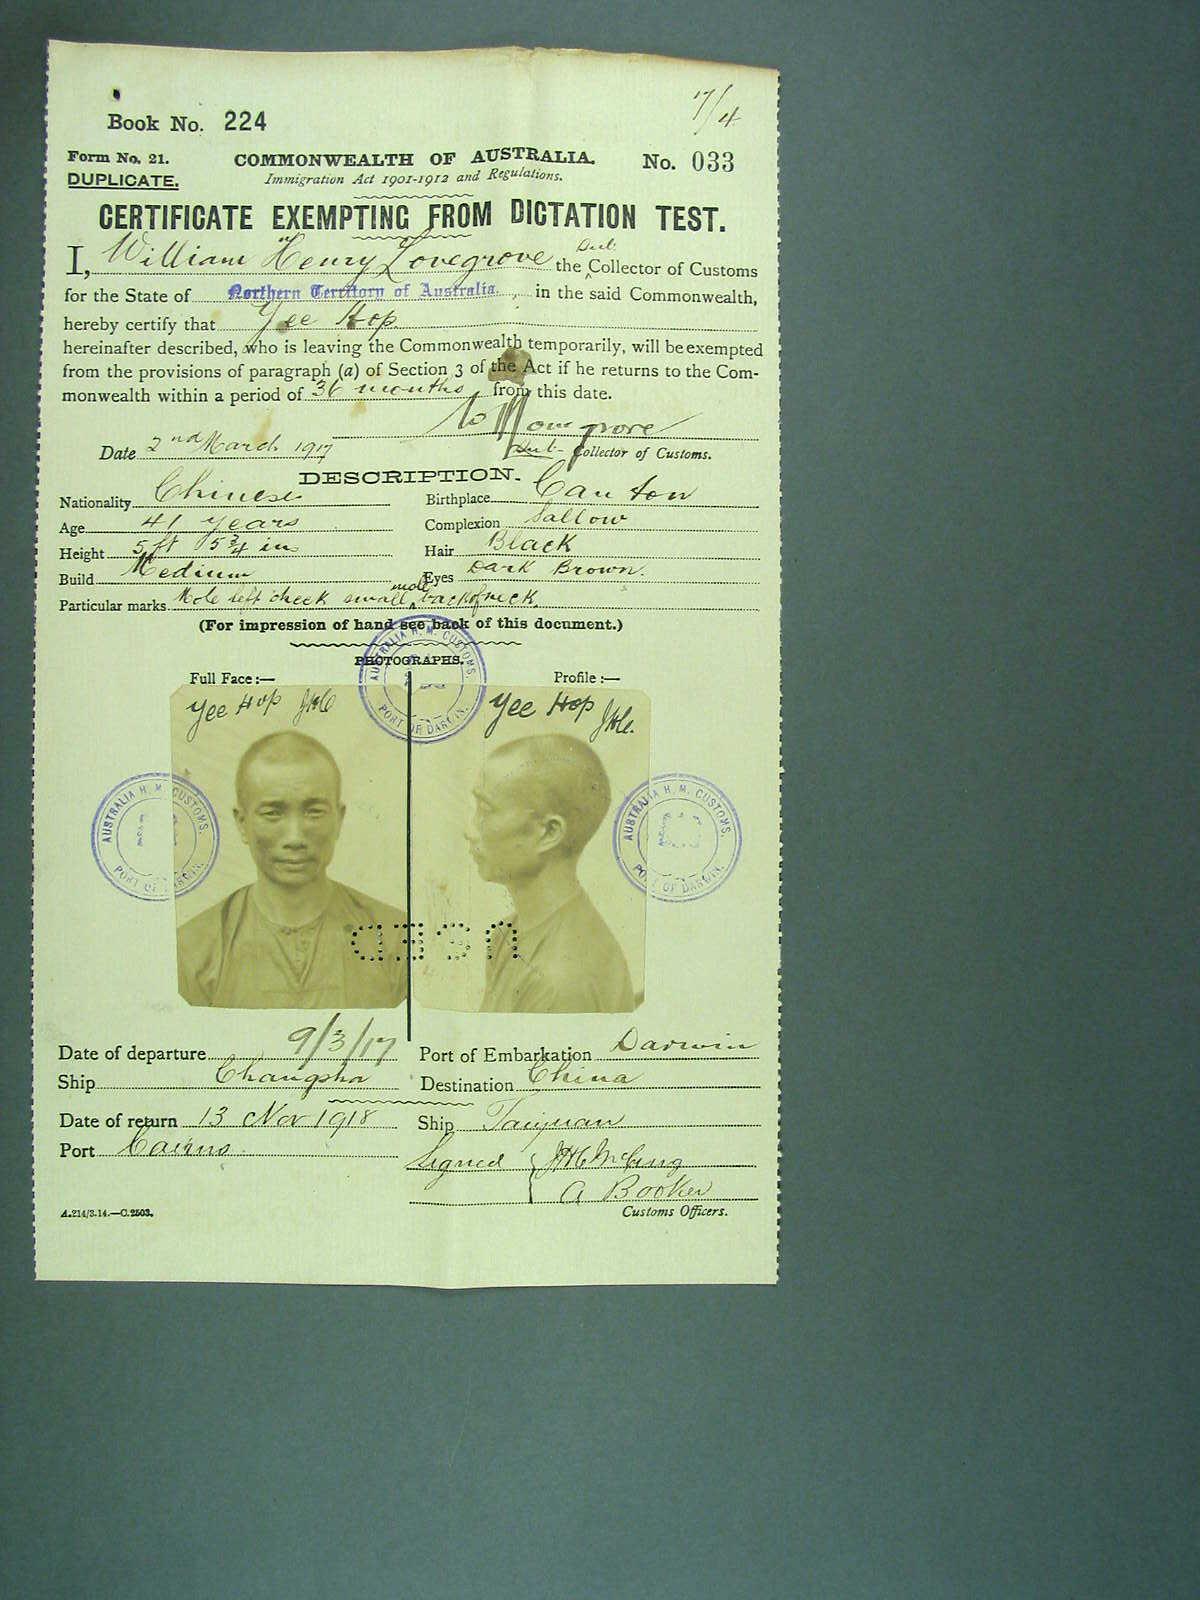 17/4
Book No. 224
Form No. 21. COMMONWEALTH OF AUSTRALIA. No. 033
DUPLICATE. Immigration Act 1901-1912 and Regulations.
CERTIFICATE EXEMPTING FROM DICTATION TEST.
I, William Henry Lovegrove the Sub Collector of Customs
for the State of Northern Territory of Australia. in the said Commonwealth,
hereby certify that Yee Hop
hereinafter described, who is leaving the Commonwealth temporarily, will be exempted
from the provisions of paragraph (a) of Section 3 of the Act if he returns to the Com-
monwealth within a period of 36 months from this date.
W H Lovegrove
Date 2nd March 1917 Sub- Collector of Customs.
DESCRIPTION.
Nationality Chinese Birthplace Canton
Age 41 years Complexion Sallow
Height 5 ft 5 3/4 in Hair Black
Build Medium Eyes Dark Brown.
Particular marks Mole left cheek small mole back of neck.
(For impression of hand see back of this document.)
PHOTOGRAPHS.
Full Face:— Profile:—
AUSTRALIA H. M. CUSTOMS. PORT OF DARWIN.
Yee Hop Yee Hop
AUSTRALIA H. M. CUSTOMS. PORT OF DARWIN.
AUSTRALIA H. M. CUSTOMS. PORT OF DARWIN.
Date of departure 9/3/17 Port of Embarkation Darwin
Ship Changsha Destination China
Date of return 13 Nov 1918 Ship Taiyuan
Port Cairns. Signed
A Booker
A.214/3.14.—C.2503. Customs Officers.